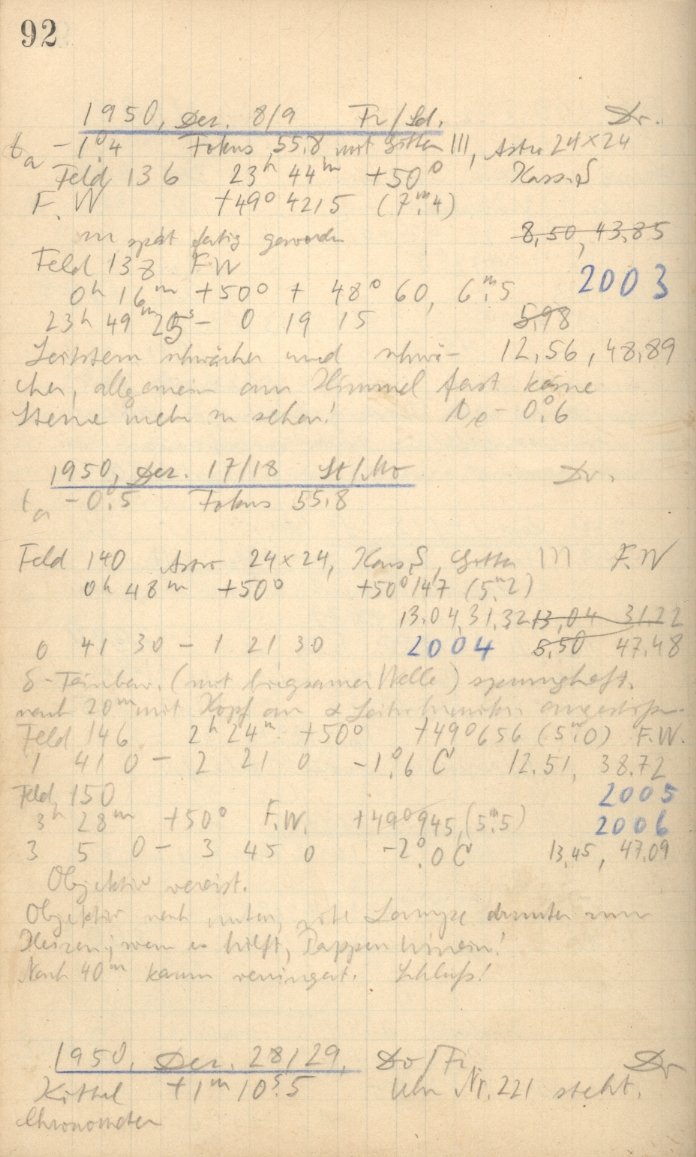 92
1950, Dez. 8/9 Fr/Sd. Dr.
ta - 1°.4 Fokus 55.8 mit Gitter III, Astro 24×24
Feld 136 23h 44m +50° Kass. S
F. W +49° 4215 (7m.4)
zu spät fertig geworden 8,50, 43,85
Feld 138 F W 2003
0h 16m +50° + 48° 60, 6m.5
23h 49m 25s - 0 19 15 5,98
Leitstern schwächer und schwä- 12,56, 48,89
cher, allgemein am Himmel fast keine
Sterne mehr zu sehen! te - 0°.6
1950, Dez. 17/18 St/Mo Dr.
ta - 0°.5 Fokus 55.8
Feld 140 Astro 24×24, Kass. S, Gitter III F.W
0h 48m +50° +50° 147 (5m.2)
13.04, 31,32 13,04 31.22
0 41 30 - 1 21 30 2004 5,50 47.48
δ-Feinbew. (mit Welle) sprunghaft.
nach 20m mit Kopf an
Feld 146 2h 24m +50° +49° 656 (5m.0) F.W.
1 41 0 - 2 21 0 -1°.6 C 12.51, 38.72
Feld 150 2005
3h 28m +50° F.W. +49° 945, (5m.5) 2006
3 5 0 - 3 45 0 -2°.0 C 13,45, 47.09
Objektiv vereist.
Objektiv nach unten, Lampe darunter zum
Heizen; wenn es hilft, Pappen hinein!
Nach 40m kaum verringert. Schluß!
1950, Dez. 28/29, Do/Fr. Dr
Kittel +1m 10s.5 Uhr Nr. 221 steht.
Chronometer